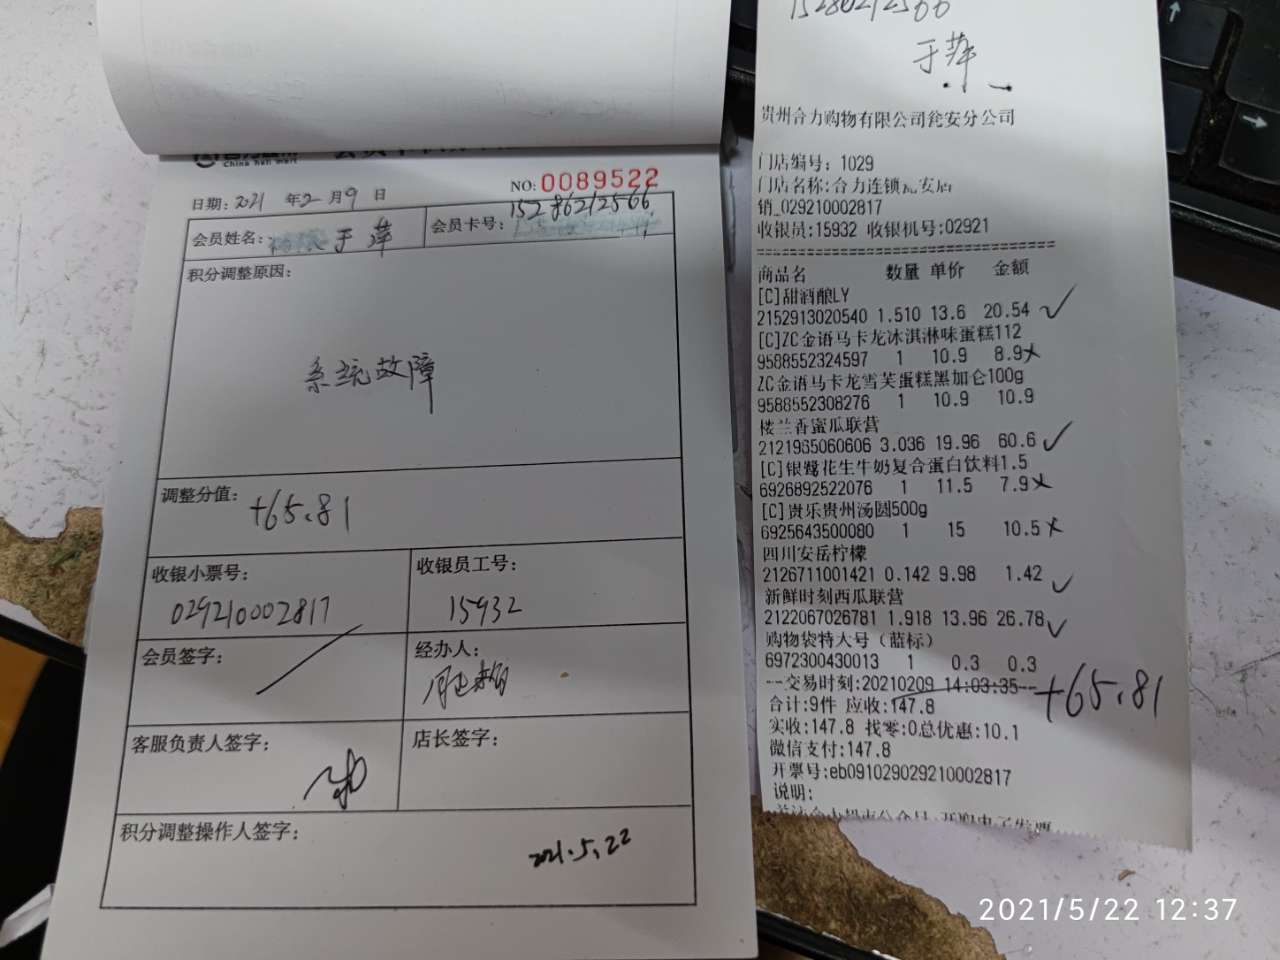 China heli mart
日期：2021 年2月9日
NO: 0089522
会员姓名： 于萍
会员卡号： 15286212566
积分调整原因：
系统故障
调整分值： +65.81
收银小票号：
029210002817
收银员工号：
15932
会员签字：
经办人：
客服负责人签字：
店长签字：
积分调整操作人签字：
2021.5.22
15286212566
于萍
贵州合力购物有限公司瓮安分公司
门店编号: 1029
门店名称:合力连锁瓮安店
销_029210002817
收银员:15932 收银机号:02921
商品名 数量 单价 金额
[C]甜酒酿LY
2152913020540 1.510 13.6 20.54
[C]ZC金语马卡龙冰淇淋味蛋糕112
9588552324597 1 10.9 8.9
ZC金语马卡龙雪芙蛋糕黑加仑100g
9588552308276 1 10.9 10.9
楼兰香蜜瓜联营
2121965060606 3.036 19.96 60.6
[C]银鹭花生牛奶复合蛋白饮料1.5
6926892522076 1 11.5 7.9
[C]贵乐贵州汤圆500g
6925643500080 1 15 10.5
四川安岳柠檬
2126711001421 0.142 9.98 1.42
新鲜时刻西瓜联营
2122067026781 1.918 13.96 26.78
购物袋特大号（蓝标）
6972300430013 1 0.3 0.3
--交易时刻:20210209 14:03:35--
+65.81
合计:9件 应收:147.8
实收:147.8 找零:0总优惠:10.1
微信支付:147.8
开票号:eb091029029210002817
说明:
2021/5/22 12:37